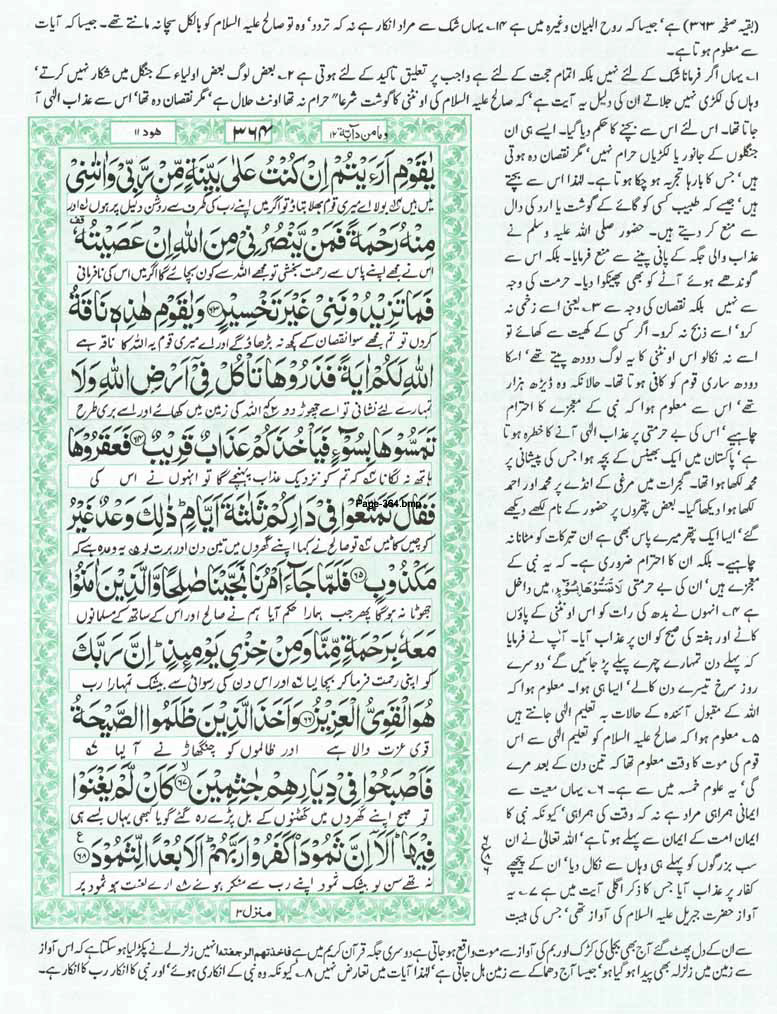 (بقیہ صفحہ ۳۶۳) ہے' جیسا کہ روح البیان وغیرہ میں ہے ۱۴؎ یہاں شک سے مراد انکار ہے نہ کہ تردد' وہ تو صالح علیہ السلام کو بالکل سچا نہ مانتے تھے۔ جیسا کہ آیات
سے معلوم ہوتا ہے۔
۱؎ یہاں اگر فرمانا شک کے لئے نہیں بلکہ اتمام حجت کے لئے ہے واجب پر تعلیق تاکید کے لئے ہوتی ہے ۲؎ بعض لوگ بعض اولیاء کے جنگل میں شکار نہیں کرتے'
وہاں کی لکڑی نہیں جلاتے ان کی دلیل یہ آیت ہے' کہ صالح علیہ السلام کی اونٹنی کا گوشت شرعاً حرام نہ تھا اونٹ حلال ہے' مگر نقصان دہ تھا' اس سے عذاب الٰہی آ
جاتا تھا۔ اس لئے اس سے بچنے کا حکم دیا گیا۔ ایسے ہی ان
جنگلوں کے جانور یا لکڑیاں حرام نہیں' مگر نقصان دہ ہوتی
ہیں' جس کا بارہا تجربہ ہو چکا ہوتا ہے۔ لہٰذا اس سے بچتے
ہیں' جیسے کہ طبیب کسی کو گائے کے گوشت یا ارد کی دال
سے منع کر دیتے ہیں۔ حضور صلی اللہ علیہ وسلم نے
عذاب والی جگہ کے پانی پینے سے منع فرمایا۔ بلکہ اس سے
گوندھے ہوئے آٹے کو بھی پھینکوا دیا۔ حرمت کی وجہ
سے نہیں بلکہ نقصان کی وجہ سے ۳؎ یعنی اسے زخمی نہ
کرو' اسے ذبح نہ کرو۔ اگر کسی کے کھیت سے کھائے تو
اسے نہ نکالو اس اونٹنی کا یہ لوگ دودھ پیتے تھے' اسکا
دودھ ساری قوم کو کافی ہوتا تھا۔ حالانکہ وہ ڈیڑھ ہزار
تھے' اس سے معلوم ہوا کہ نبی کے معجزے کا احترام
چاہیے' اس کی بے حرمتی پر عذاب الٰہی آنے کا خطرہ ہوتا
ہے' پاکستان میں ایک بھینس کے بچہ ہوا جس کی پیشانی پر
محمد لکھا ہوا تھا۔ گجرات میں مرغی کے انڈے پر محمد اور احمد
لکھا ہوا دیکھا گیا۔ بعض پتھروں پر حضور کے نام لکھے دیکھے
گئے' ایسا ایک پتھر میرے پاس بھی ہے ان تبرکات کو مٹانا نہ
چاہیے۔ بلکہ ان کا احترام ضروری ہے۔ کہ یہ نبی کے
معجزے ہیں' ان کی بے حرمتی لَا تَمَسُّوْهَا بِسُوْٓءٍ میں داخل
ہے ۴؎ انہوں نے بدھ کی رات کو اس اونٹنی کے پاؤں
کاٹے اور ہفتہ کی صبح کو ان پر عذاب آیا۔ آپ نے فرمایا
کہ پہلے دن تمہارے چہرے پیلے پڑ جائیں گے' دوسرے
روز سرخ تیسرے دن کالے' ایسا ہی ہوا۔ معلوم ہوا کہ
اللہ کے مقبول آئندہ کے حالات بہ تعلیم الٰہی جانتے ہیں
۵؎ معلوم ہوا کہ صالح علیہ السلام کو تعلیم الٰہی سے اس
قوم کی موت کا وقت معلوم تھا کہ تین دن کے بعد مرے
گی' یہ علوم خمسہ میں سے ہے۔ ۶؎ یہاں معیت سے
ایمانی ہمراہی مراد ہے نہ کہ وقت کی ہمراہی' کیونکہ نبی کا
ایمان امت کے ایمان سے پہلے ہوتا ہے' اللہ تعالیٰ نے ان
سب بزرگوں کو پہلے ہی وہاں سے نکال دیا' ان کے پیچھے
کفار پر عذاب آیا جس کا ذکر اگلی آیت میں ہے ۷؎ یہ
آواز حضرت جبریل علیہ السلام کی آواز تھی' جس کی ہیبت
ومامن دآبۃ ۱۲
۳۶۴
ھود ۱۱
یٰقَوْمِ اَرَءَیْتُمْ اِنْ كُنْتُ عَلٰی بَیِّنَةٍ مِّنْ رَّبِّیْ وَاٰتٰىنِیْ
بولا اے میری قوم بھلا بتاؤ تو اگر میں اپنے رب کی طرف سے روشن دلیل پر ہوں اور
مِنْهُ رَحْمَةً فَمَنْ یَّنْصُرُنِیْ مِنَ اللّٰهِ اِنْ عَصَیْتُهٗ
اس نے مجھے اپنے پاس سے رحمت بخشی تو مجھے اللہ سے کون بچائے گا اگر میں اس کی نافرمانی
فَمَا تَزِیْدُوْنَنِیْ غَیْرَ تَخْسِیْرٍ ۶۳ وَیٰقَوْمِ هٰذِهٖ نَاقَةُ
کروں تو تم مجھے سوا نقصان کے کچھ نہ بڑھاؤ گے اور اے میری قوم یہ اللہ کا ناقہ ہے
اللّٰهِ لَكُمْ اٰیَةً فَذَرُوْهَا تَاْكُلْ فِیْۤ اَرْضِ اللّٰهِ وَلَا
تمہارے لئے نشانی تو اسے چھوڑ دو کہ اللہ کی زمین میں کھائے اور اسے بری طرح
تَمَسُّوْهَا بِسُوْٓءٍ فَیَاْخُذَكُمْ عَذَابٌ قَرِیْبٌ ۶۴ فَعَقَرُوْهَا
ہاتھ نہ لگانا کہ تم کو نزدیک عذاب پہنچے گا تو انہوں نے اس کی
فَقَالَ تَمَتَّعُوْا فِیْ دَارِكُمْ ثَلٰثَةَ اَیَّامٍ ذٰلِكَ وَعْدٌ غَیْرُ
Page-364.bmp
کونچیں کاٹیں تو صالح نے کہا اپنے گھروں میں تین دن اور برت لو یہ وعدہ ہے کہ
مَكْذُوْبٍ ۶۵ فَلَمَّا جَآءَ اَمْرُنَا نَجَّیْنَا صٰلِحًا وَّالَّذِیْنَ اٰمَنُوْا
جھوٹا نہ ہوگا پھر جب ہمارا حکم آیا ہم نے صالح اور اس کے ساتھ کے مسلمانوں
مَعَهٗ بِرَحْمَةٍ مِّنَّا وَمِنْ خِزْیِ یَوْمِىِٕذٍ اِنَّ رَبَّكَ
کو اپنی رحمت فرما کر بچا لیا اور اس دن کی رسوائی سے بیشک تمہارا رب
هُوَ الْقَوِیُّ الْعَزِیْزُ ۶۶ وَاَخَذَ الَّذِیْنَ ظَلَمُوا الصَّیْحَةُ
قوی عزت والا ہے اور ظالموں کو چنگھاڑ نے آ لیا ۷؎
فَاَصْبَحُوْا فِیْ دِیَارِهِمْ جٰثِمِیْنَ ۶۷ كَاَنْ لَّمْ یَغْنَوْا
تو صبح اپنے گھروں میں گھٹنوں کے بل پڑے رہ گئے گویا کبھی یہاں بسے ہی
فِیْهَا اَلَاۤ اِنَّ ثَمُوْدَا۟ كَفَرُوْا رَبَّهُمْ اَلَا بُعْدًا لِّثَمُوْدَ ۶۸
نہ تھے سن لو بیشک ثمود اپنے رب سے منکر ہوئے ۸؎ ارے لعنت ہو ثمود پر
منزل ۳
سے ان کے دل پھٹ گئے آج بھی بجلی کی کڑک اور بم کی آواز سے موت واقع ہو جاتی ہے دوسری جگہ قرآن کریم میں ہے فاخذتهم الرجفة انہیں زلزلے نے پکڑ لیا ہو سکتا ہے کہ اس آواز
سے زمین میں زلزلہ بھی پیدا ہو گیا ہو' جیسا آج دھماکے سے زمین ہل جاتی ہے' لہٰذا آیات میں تعارض نہیں ۸؎ کیونکہ وہ نبی کے انکاری ہوئے' اور نبی کا انکار رب کا انکار ہے۔